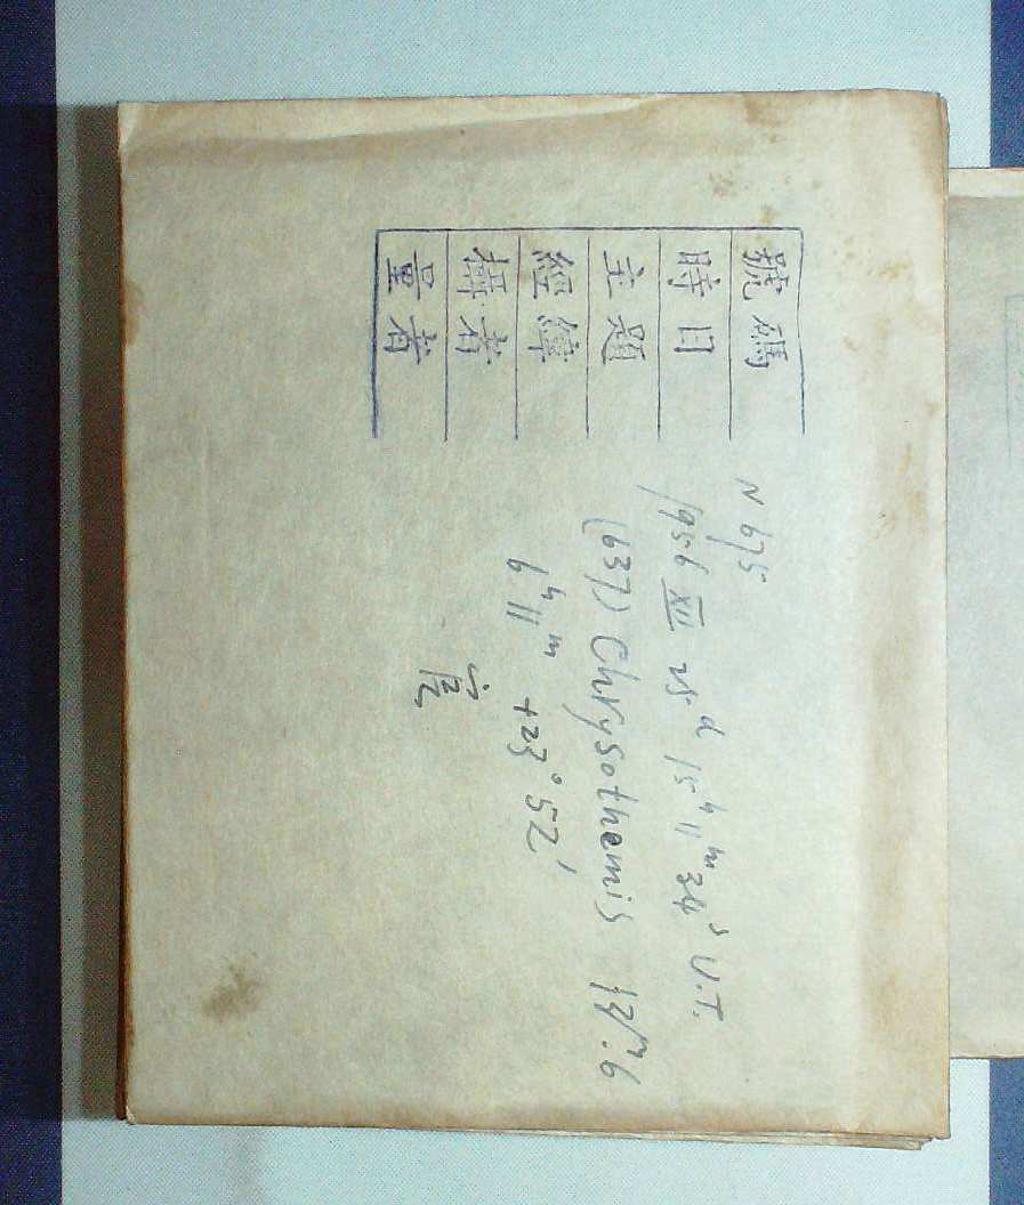 號碼 N 675
時日 1956 XII 25ᵈ 15ʰ11ᵐ34ˢ U.T.
主題 (637) Chrysothemis
經緯 6ʰ11ᵐ +23°52′
攝者
量者